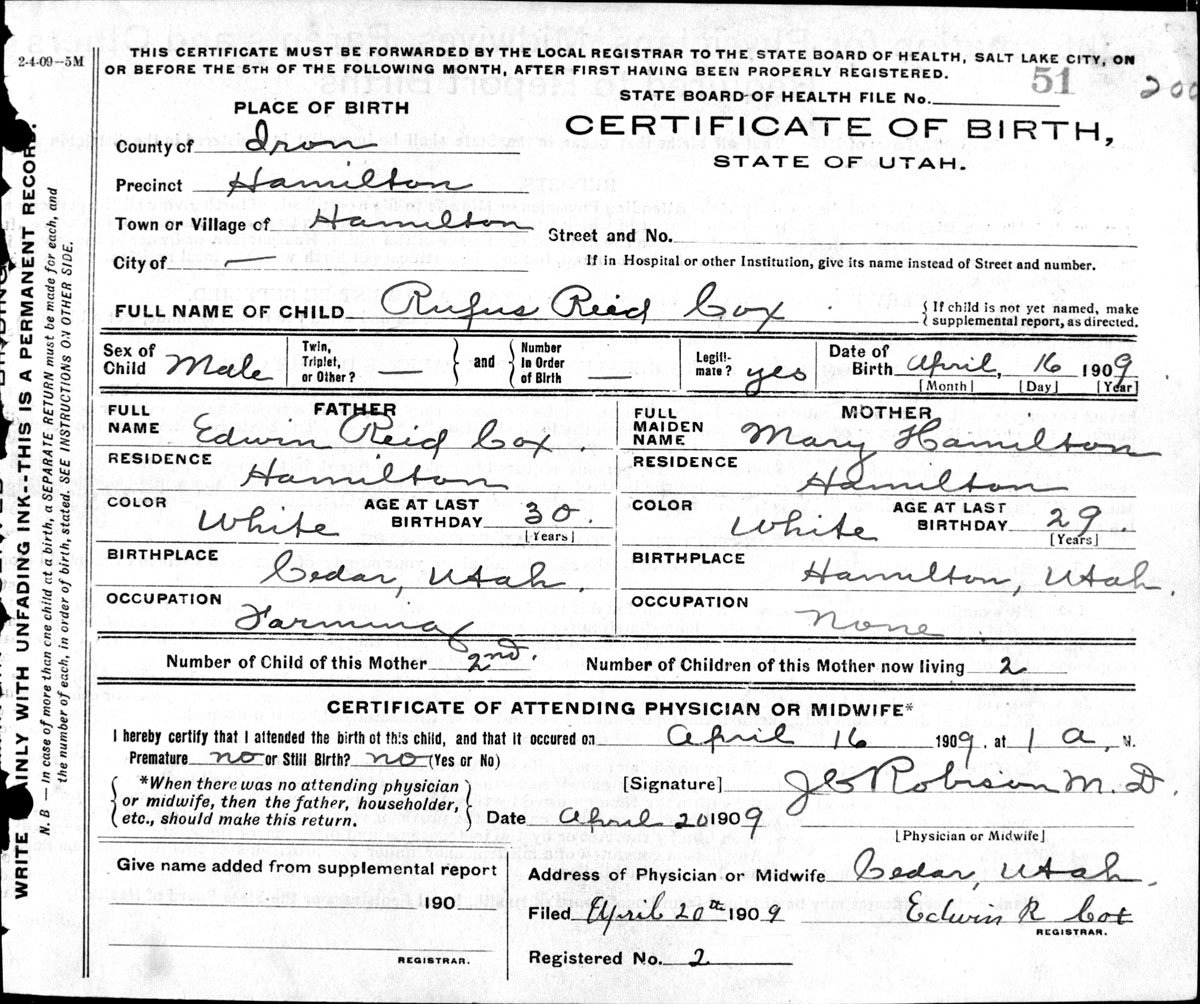 2-4-09--5M
THIS CERTIFICATE MUST BE FORWARDED BY THE LOCAL REGISTRAR TO THE STATE BOARD OF HEALTH, SALT LAKE CITY, ON
OR BEFORE THE 5TH OF THE FOLLOWING MONTH, AFTER FIRST HAVING BEEN PROPERLY REGISTERED.
STATE BOARD OF HEALTH FILE No. 51 200
CERTIFICATE OF BIRTH,
STATE OF UTAH.
PLACE OF BIRTH
County of Iron
Precinct Hamilton
Town or Village of Hamilton
Street and No.
City of —
If in Hospital or other Institution, give its name instead of Street and number.
FULL NAME OF CHILD Rufus Reid Cox
{ If child is not yet named, make
supplemental report, as directed.
Sex of Child Male
Twin, Triplet, or Other? — } and { Number In Order of Birth —
Legiti-mate? yes
Date of Birth April, 16 1909
[Month] [Day] [Year]
FATHER
FULL NAME Edwin Reid Cox.
RESIDENCE Hamilton
COLOR White AGE AT LAST BIRTHDAY 30.
[Years]
BIRTHPLACE
Cedar, Utah.
OCCUPATION
Farming
MOTHER
FULL MAIDEN NAME Mary Hamilton
RESIDENCE Hamilton
COLOR White AGE AT LAST BIRTHDAY 29
[Years]
BIRTHPLACE
Hamilton, Utah.
OCCUPATION
None
Number of Child of this Mother 2nd. Number of Children of this Mother now living 2
CERTIFICATE OF ATTENDING PHYSICIAN OR MIDWIFE*
I hereby certify that I attended the birth of this child, and that it occured on April 16 1909, at 1 a, M.
Premature no or Still Birth? no (Yes or No)
{ *When there was no attending physician
or midwife, then the father, householder,
etc., should make this return. }
[Signature] J E Robison M. D.
Date April 20 1909
[Physician or Midwife]
Give name added from supplemental report
190
REGISTRAR.
Address of Physician or Midwife Cedar, Utah.
Filed April 20th 1909 Edwin R Cox
REGISTRAR.
Registered No. 2
WRITE PLAINLY WITH UNFADING INK--THIS IS A PERMANENT RECORD.
N. B — In case of more than one child at a birth, a SEPARATE RETURN must be made for each, and
the number of each, in order of birth, stated. SEE INSTRUCTIONS ON OTHER SIDE.